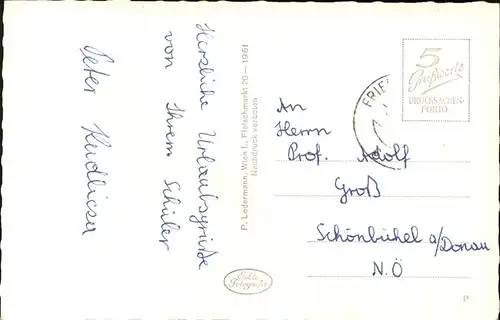 Herzliche Urlaubsgrüße
von Ihrem Schüler
Peter Kudlicza
P. Ledermann, Wien I., Fleischmarkt 20 – 1961
Nachdruck verboten
Echte
Fotografie
5
Grußworte
DRUCKSACHEN-
PORTO
FRIE
An
Herrn
Prof. Adolf
Groß
Schönbühel a/Donau
N.Ö